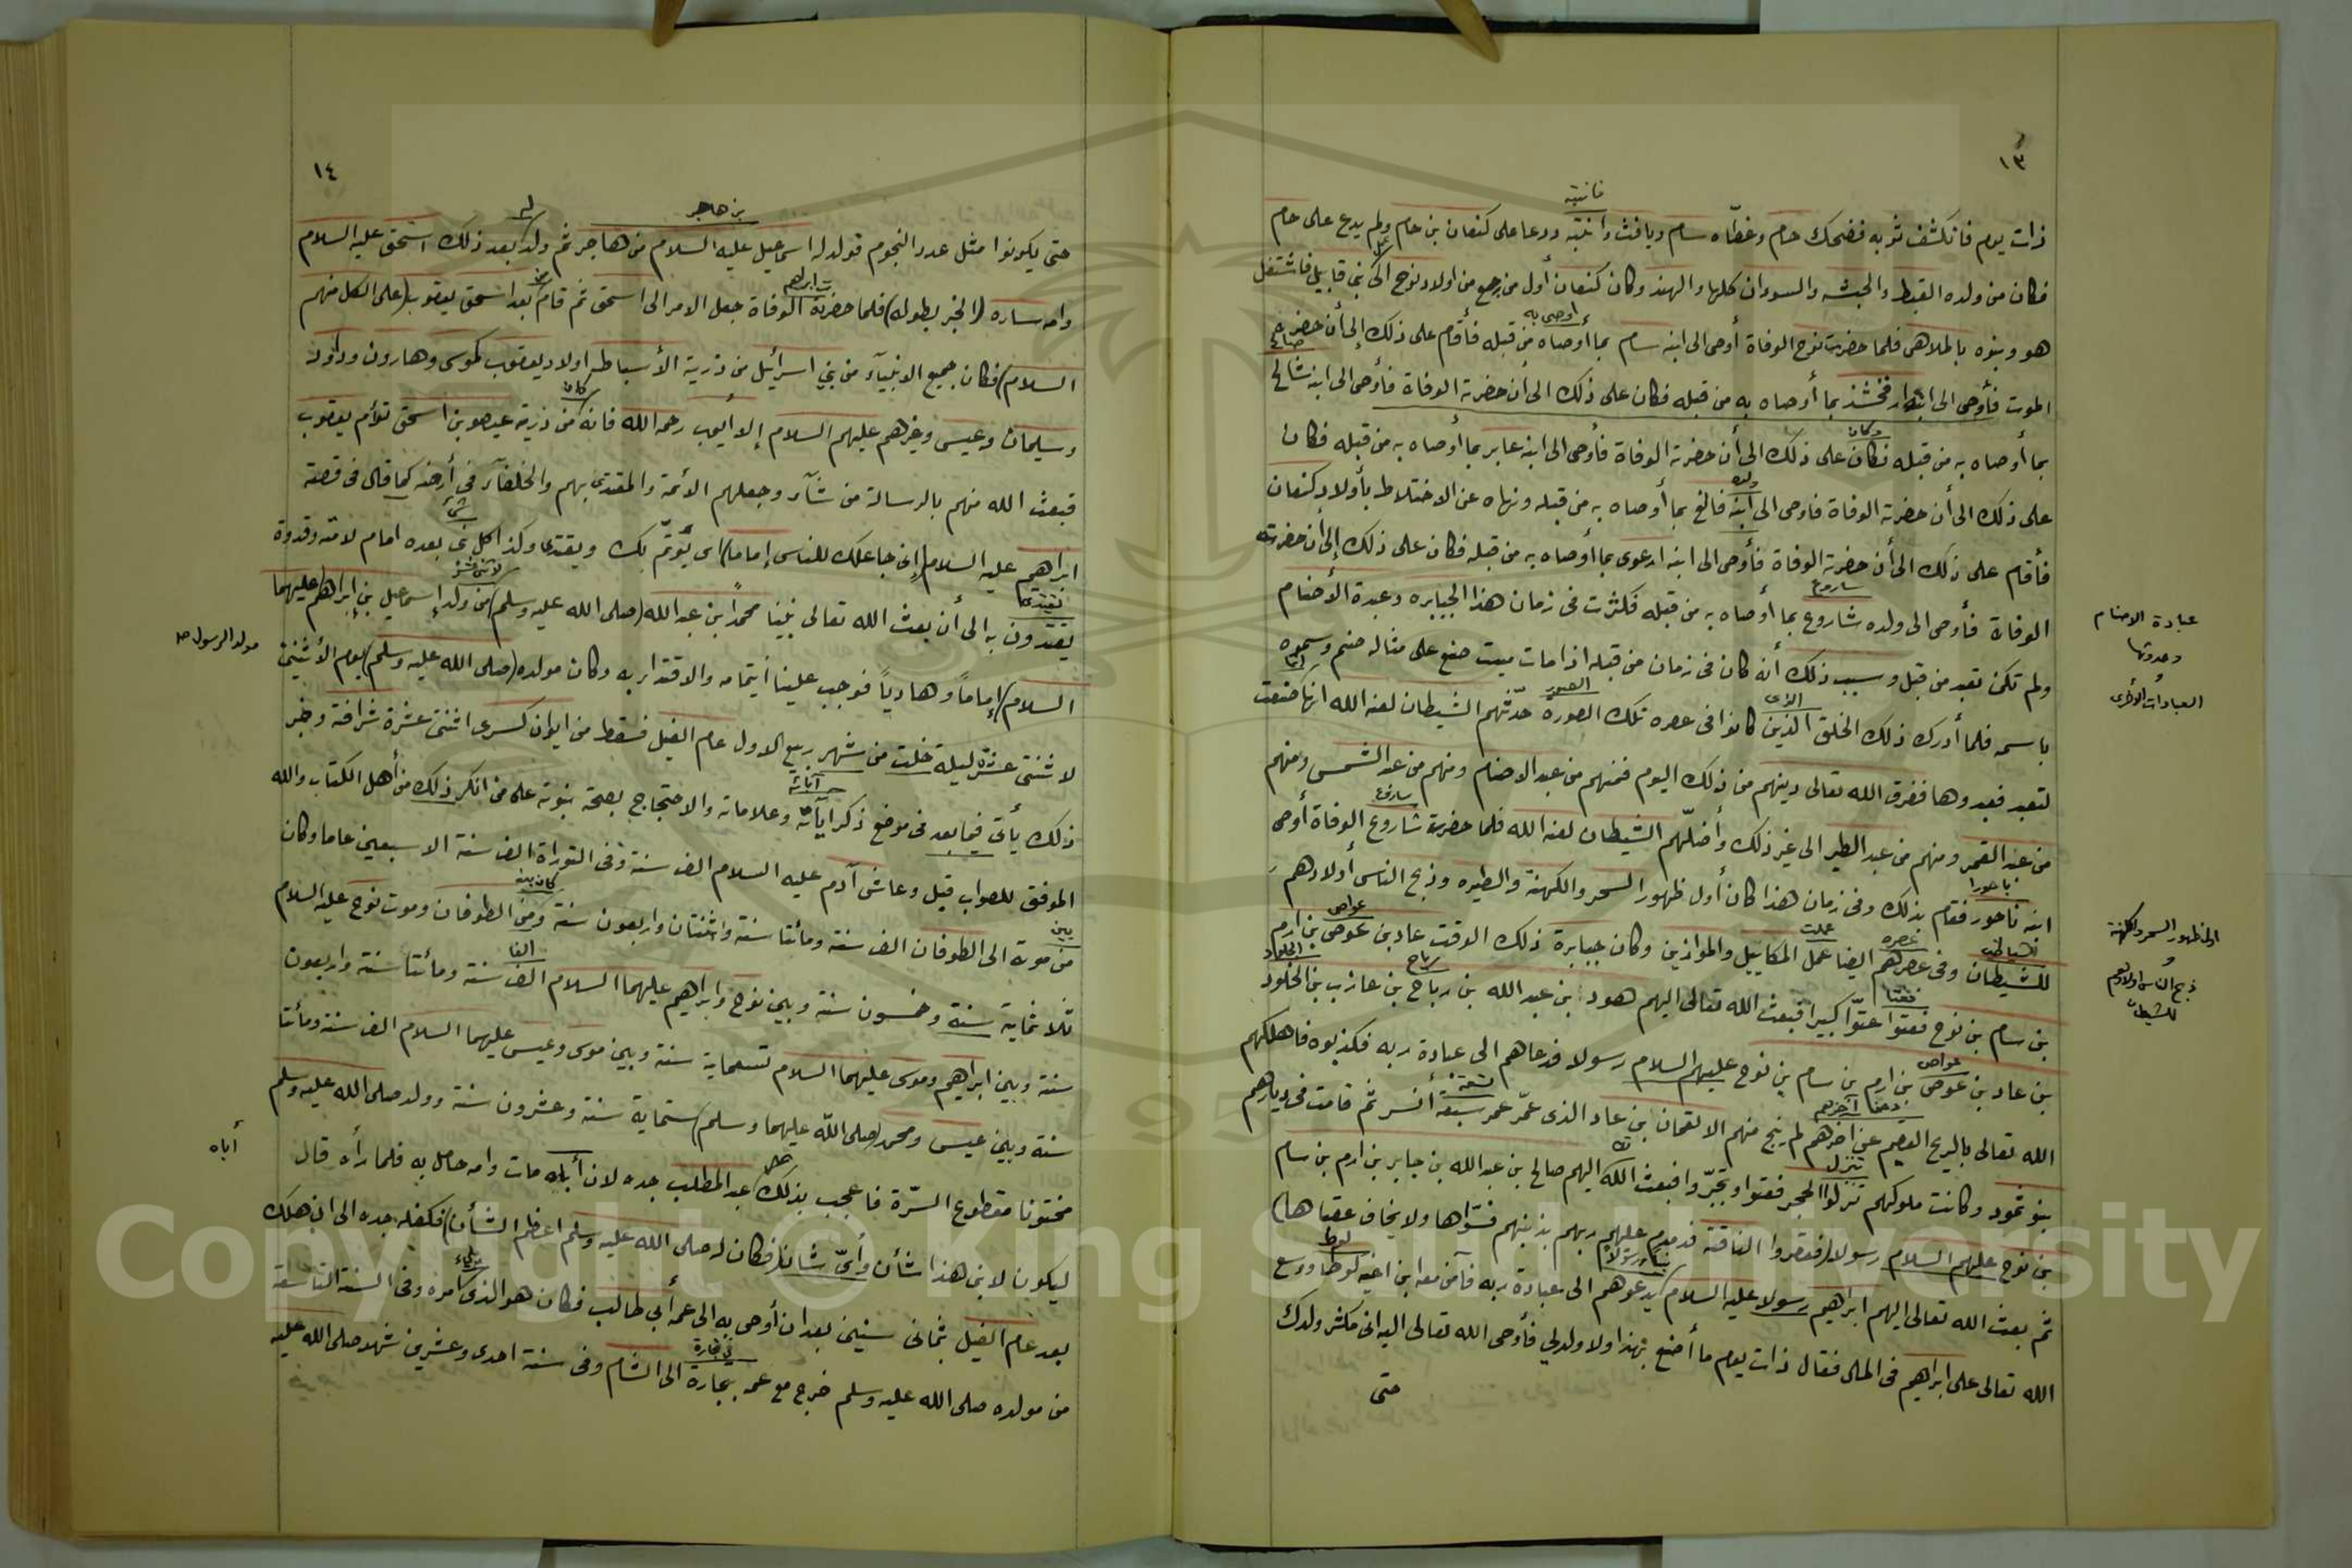 ١٣
فانتبه
ذات يوم فانكشف ثوبه فضحك حام وغطّاه سام ويافث وانتبه ودعا على كنعان بن حام ولم يدع على حام
فكان من ولده القبط والحبشه والسودان كلها والهند وكان كنعان أول من رجع من اولاد نوح الى بني قابيل فاشتغل
هو وبنوه بالملاهى فلما حضرت نوح الوفاة أوصى الى ابنه سام بما أوصاه من قبله فأقام على ذلك إلى أن حضر
أوصى به
الموت فأوصى الى ابنه ارفخشذ بما أوصاه به من قبله فكان على ذلك الى أن حضرته الوفاة فأوصى الى ابنه شالخ
بما أوصاه به من قبله فكان على ذلك الى أن حضرته الوفاة فأوصى الى ابنه عابر بما أوصاه به من قبله فكان
وكان
على ذلك الى أن حضرته الوفاة فاوصى الى ابنه فالغ بما أوصاه به من قبله ونهاه عن الاختلاط بأولاد كنعان
ولده
فأقام على ذلك الى أن حضرته الوفاة فأوصى الى ابنه ارعوى بما أوصاه به من قبله فكان على ذلك إلى أن حضرته
الوفاة فأوصى الى ولده شاروع بما أوصاه به من قبله فكثرت فى زمان هذا الجبابره وعبدة الأصنام
ساروع
ولم تكن تعبد من قبل وسبب ذلك أنه كان فى زمان من قبله اذا مات ميت صنع على مثاله صنم وسموه
باسمه فلما أدرك ذلك الخلق الذين كانوا فى عصره تلك الصورة حدّثهم الشيطان لعنه الله انها صنعت
الذى
الصور
لتعبد فعبدوها ففرق الله تعالى دينهم من ذلك اليوم فمنهم من عبد الاصنام ومنهم من عبد الشمس ومنهم
من عبد القمر ومنهم من عبد الطير الى غير ذلك وأضلّهم الشيطان لعنه الله فلما حضرت شاروع الوفاة أوصى
ساروع
ابنه ناحور فقام بذلك وفى زمان هذا كان أول ظهور السحر والكهنة والطيره وذبح الناس أولادهم
ناحورا
للشيطان وفى عصرهم ايضا عمل المكاييل والموازين وكان جبابرة ذلك الوقت عاد بن عوص بن ارم
عصره
عملت
عواص
بن سام بن نوح فعتوا عتوّا كبيرا فبعث الله تعالى اليهم هود بن عبد الله بن رباح بن عازب بن الخلود
فعتا
رباح
الجلود
بن عاد بن عوص بن ارم بن سام بن نوح عليهم السلام رسولا فدعاهم الى عبادة ربه فكذبوه فاهلكهم
عواص
الله تعالى بالريح العقيم عن آخرهم لم ينج منهم الا لقمان بن عاد الذى عمّر عمر سبعة أنسر ثم قامت فى ديارهم
بنو ثمود وكانت ملوكهم تنزلوا الحجر فعتوا وتجبّروا فبعث الله اليهم صالح بن عبد الله بن جابر بن ارم بن سام
تنزل
بن نوح عليهم السلام رسولا (فعقروا الناقة فدمدم عليهم ربهم بذنبهم فسوّاها ولا يخاف عقباها)
ثم بعث الله تعالى اليهم ابراهيم رسولا عليه السلام يدعوهم الى عبادة ربه فآمن معه ابن اخيه لوطا ووسع
لوط
الله تعالى على ابراهيم فى المال فقال ذات يوم ما أصنع بهذا ولا ولد لي فأوحى الله تعالى اليه انى مكثر ولدك
حتى
عبادة الاصنام
وحدوثها
و
العبادات الأخرى
ظهور السحر والكهنة
و
ذبح الناس اولادهم
للشيطان
١٤
من هاجر
حتى يكونوا مثل عدد النجوم فولد له اسماعيل عليه السلام من هاجر ثم ولد بعد ذلك اسحق عليه السلام
له
وامه ساره (الخبر بطوله) فلما حضرته الوفاة جعل الامر الى اسحق ثم قام بعد اسحق يعقوب (على الكل منهم
السلام) فكان جميع الانبيآء من بني اسرائيل من ذرية الأسباط اولاد يعقوب كموسى وهارون وداود
وسليمان وعيسى وغيرهم عليهم السلام إلا أيوب رحمه الله فانه من ذرية عيصو بن اسحق توأم يعقوب
كان
فبعث الله منهم بالرسالة من شآء وجعلهم الأئمة والمقتدى بهم والخلفآء في أرضه كما قال فى قصة
ابراهيم عليه السلام (إنى جاعلك للناس إماما) اى يؤتمّ بك ويقتدى وكذا كل نبى بعده امام لامته وقدوة
يقتدون به الى أن بعث الله تعالى نبينا محمدًا بن عبد الله (صلى الله عليه وسلم) من ولد إسماعيل بن إبراهيم عليهما
السلام) إماماً وهادياً فوجب علينا أيتمامه والاقتدا به وكان مولده (صلى الله عليه وسلم) يوم الأثنين
لاثنتى عشرة ليلة خلت من شهر ربيع الاول عام الفيل فسقط من ايوان كسرى اثنتى عشرة شرافة وخبر
ذلك يأتى فيما بعد فى موضع ذكر آياته وعلاماته والاحتجاج بصحة نبوته على من انكر ذلك من أهل الكتاب والله
الموفق للصواب قيل وعاش آدم عليه السلام الف سنة وفى التوراة الف سنة الا سبعين عاما وكان
من موته الى الطوفان الف سنة ومائتا سنة واثنتان واربعون سنة ومن الطوفان وموت نوح عليه السلام
بين
كان بين
ثلاثماية سنة وخمسون سنة وبين نوح وابراهيم عليهما السلام الف سنة ومائتا سنة واربعون
الفا
سنة وبين ابراهيم وموسى عليهما السلام تسعماية سنة وبين موسى وعيسى عليهما السلام الف سنة ومائتا
سنة وبين عيسى ومحمد (صلى الله عليهما وسلم) ستماية سنة وعشرون سنة وولد صلى الله عليه وسلم
مختونا مقطوع السّرة فاعجب بذلك عبد المطلب جده لان أباه مات وامه حامل به فلما رأه قال
ليكون لابنى هذا شأن وأىّ شان (فكان له صلى الله عليه وسلم اعظم الشأن) فكفله جده الى ان هلك
بعد عام الفيل بثمانى سنين بعد ان أوصى به الى عمه أبي طالب فكان هو الذى أمره وفى السنة التاسعة
من مولده صلى الله عليه وسلم خرج مع عمه بتجارة الى الشام وفى سنة احدى وعشرين شهد صلى الله عليه
في تجارة
مولد الرسول ص
أباه
Copyright © King Saud University